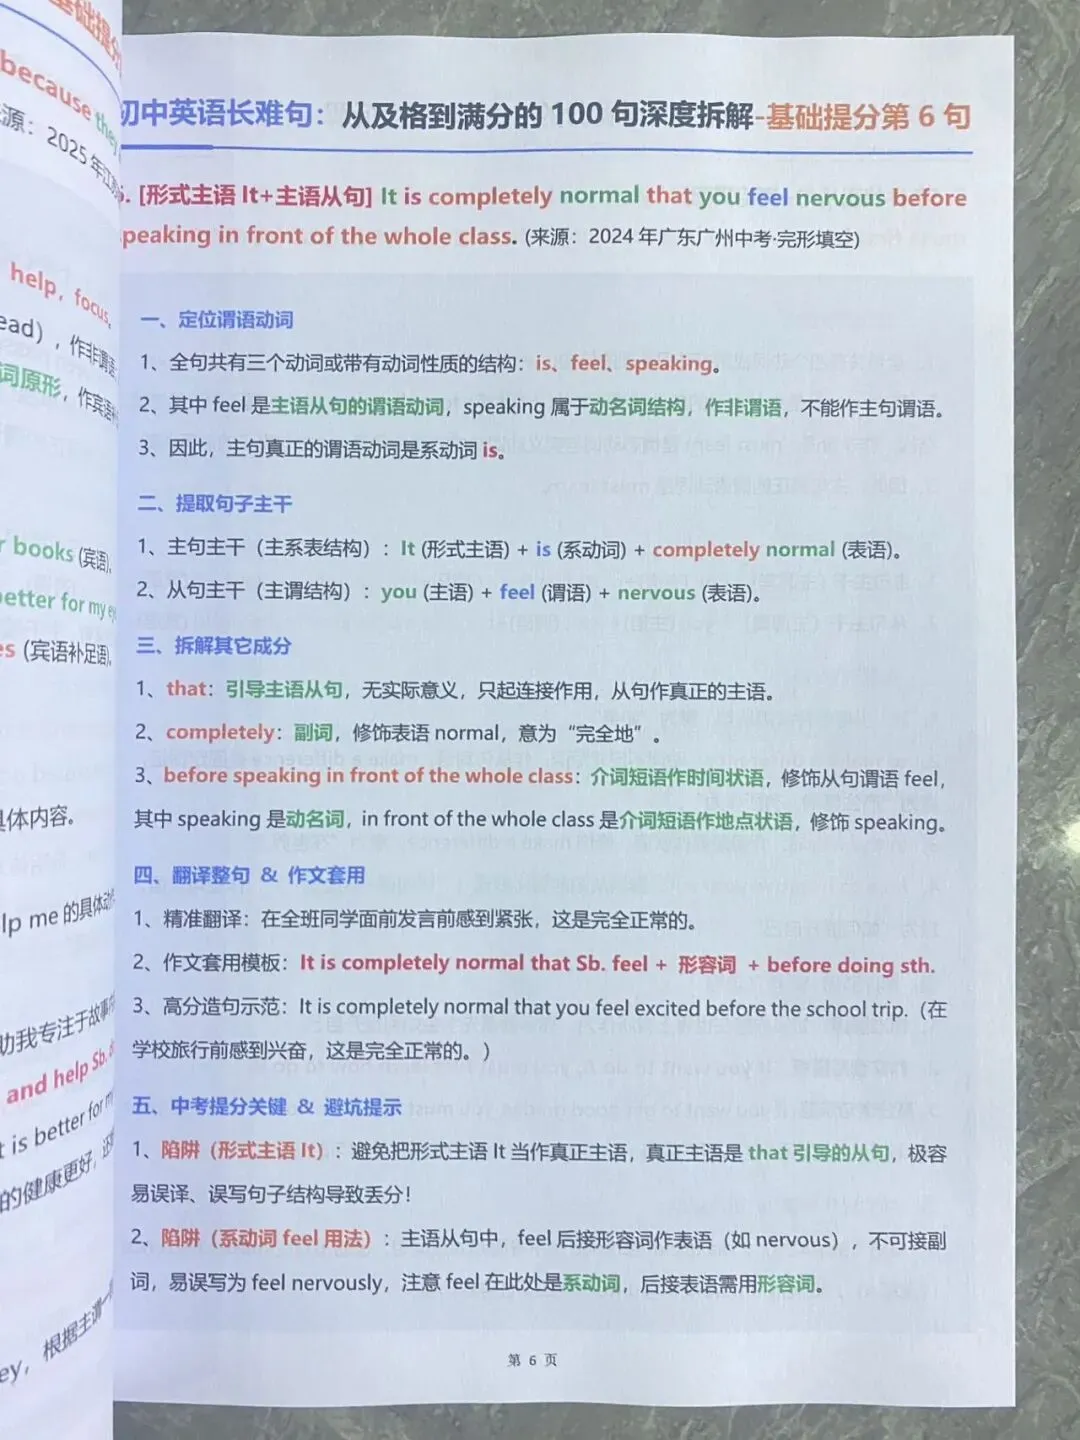 初中英语长难句：从及格到满分的 100 句深度拆解-基础提分第 6 句
[形式主语 It+主语从句] It is completely normal that you feel nervous before
speaking in front of the whole class. (来源：2024 年广东广州中考·完形填空)
一、定位谓语动词
1、全句共有三个动词或带有动词性质的结构：is、feel、speaking。
2、其中 feel 是主语从句的谓语动词，speaking 属于动名词结构，作非谓语，不能作主句谓语。
3、因此，主句真正的谓语动词是系动词 is。
二、提取句子主干
1、主句主干（主系表结构）：It (形式主语) + is (系动词) + completely normal (表语)。
2、从句主干（主谓结构）：you (主语) + feel (谓语) + nervous (表语)。
三、拆解其它成分
1、that：引导主语从句，无实际意义，只起连接作用，从句作真正的主语。
2、completely：副词，修饰表语 normal，意为“完全地”。
3、before speaking in front of the whole class：介词短语作时间状语，修饰从句谓语 feel，
其中 speaking 是动名词，in front of the whole class 是介词短语作地点状语，修饰 speaking。
四、翻译整句 & 作文套用
1、精准翻译：在全班同学面前发言前感到紧张，这是完全正常的。
2、作文套用模板：It is completely normal that Sb. feel + 形容词 + before doing sth.
3、高分造句示范：It is completely normal that you feel excited before the school trip.（在
学校旅行前感到兴奋，这是完全正常的。）
五、中考提分关键 & 避坑提示
1、陷阱（形式主语 It）：避免把形式主语 It 当作真正主语，真正主语是 that 引导的从句，极容
易误译、误写句子结构导致丢分！
2、陷阱（系动词 feel 用法）：主语从句中，feel 后接形容词作表语（如 nervous），不可接副
词，易误写为 feel nervously，注意 feel 在此处是系动词，后接表语需用形容词。
第 6 页
because they
源：2025 年江
help, focus,
ead），作非谓语
词原形，作宾语补
r books (宾语),
better for my ey
es (宾语补足语),
具体内容。
lp me 的具体动作
助我专注于故事内
and help Sb. d
t is better for m
的健康更好，还
ey，根据主谓一